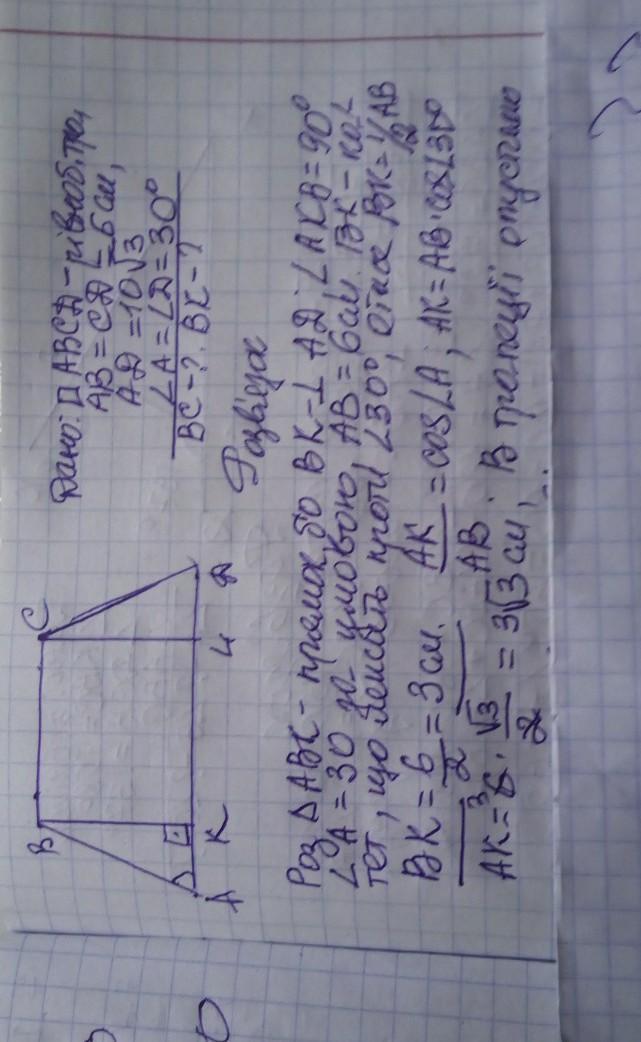 Дано: ABCD - рівноб. трап,
AB = CD = 6 см,
AD = 10√3
∠A = ∠D = 30°
BC - ? BK - ?
Розв'язок
B
C
A
K
L
D
Роз ΔABK - прямок, бо BK ⊥ AD; ∠AKB = 90°
∠A = 30 за умовою, AB = 6 см. BK - ка-
тет, що лежить проти ∠30°, отже BK = 1/2 AB
BK = 6/2 = 3 см. AK/AB = cos∠A; AK = AB · cos∠30°
AK = 6 · √3/2 = 3√3 см, В трапеції опустимо